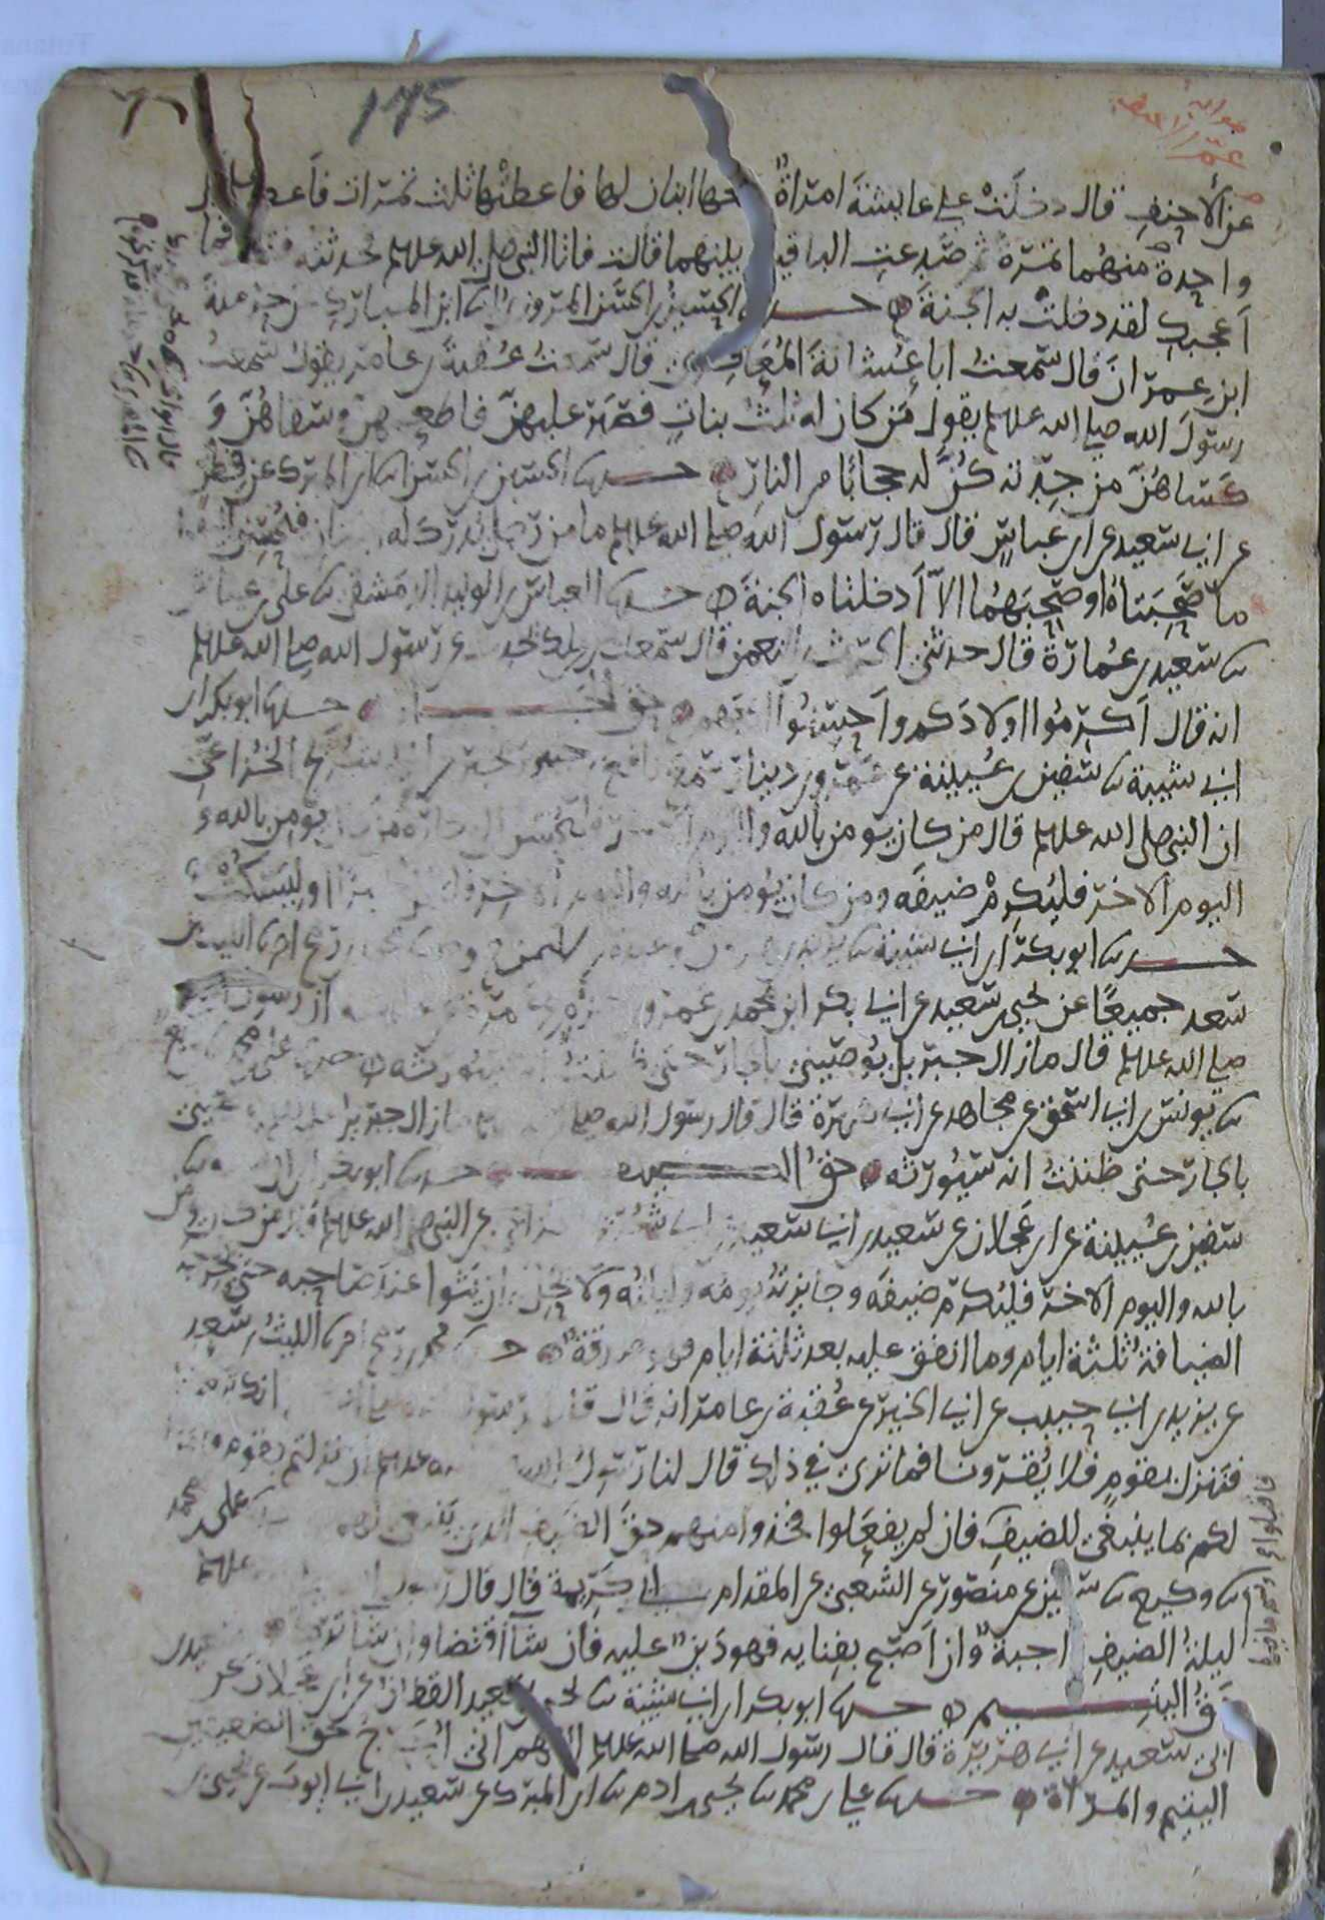 175
عن الأحنف قال دخلت على عايشة امراة معها ابنتان لها فاعطتها ثلث تمرات فاعطت كل
واحدة منهما تمرة ثم صدعت الباقية بينهما قالت فاتا النبي صلى الله عليه وسلم فحدثته فقال ما
أعجبك لقد دخلت به الجنة حدثنا الحسين بن الحسن المروزي ثنا ابن المبارك عن حرملة
ابن عمران قال سمعت ابا عشانة المعافري قال سمعت عقبة بن عامر يقول سمعت
رسول الله صلى الله عليه وسلم يقول من كان له ثلث بنات فصبر عليهن فاطعمهن وسقاهن و
كساهن من جدته كن له حجابا من النار حدثنا الحسين بن الحسن ثنا ابن المبارك عن فطر
عن ابي سعيد عن ابن عباس قال قال رسول الله صلى الله عليه وسلم ما من رجل تدرك له ابنتان فيحسن اليهما
ما صحبتاه او صحبهما الا أدخلتاه الجنة حدثنا العباس بن الوليد الدمشقي ثنا علي بن عياش
ثنا سعيد بن عمارة قال حدثني الحرث بن النعمن قال سمعت انس بن ملك يحدث عن رسول الله صلى الله عليه وسلم
انه قال أكرموا اولادكم وأحسنوا ادبهم حق الجـــوار حدثنا ابو بكر بن
ابي شيبة ثنا سفين بن عيينة عن عمرو بن دينار سمع نافع بن جبير يخبر عن ابي شريح الخزاعي
ان النبي صلى الله عليه وسلم قال من كان يومن بالله واليوم الاخر فليحسن الى جاره ومن كان يومن بالله و
اليوم الاخر فليكرم ضيفه ومن كان يومن بالله واليوم الاخر فليقل خيرا او ليسكت
حدثنا ابو بكر بن ابي شيبة ثنا يزيد بن هرون وعبدة بن سليمن ح وحدثنا محمد بن رمح انا الليث بن
سعد جميعا عن يحيى بن سعيد عن ابي بكر بن محمد بن عمرو عن عمرة عن عايشة ان رسول الله
صلى الله عليه وسلم قال ما زال جبريل يوصيني بالجار حتى ظننت انه سيورثه حدثنا علي بن محمد ثنا وكيع
ثنا يونس بن ابي اسحق عن مجاهد عن ابي هريرة قال قال رسول الله صلى الله عليه وسلم ما زال جبريل يوصيني
بالجار حتى ظننت انه سيورثه حق الضيف حدثنا ابو بكر بن ابي شيبة ثنا
سفين بن عيينة عن ابن عجلان عن سعيد بن ابي سعيد عن ابي شريح الخزاعي عن النبي صلى الله عليه وسلم قال من كان يومن
بالله واليوم الاخر فليكرم ضيفه وجايزته يومه وليلته ولا يحل له ان يثوا عند صاحبه حتى يحرجه
الضيافة ثلثة ايام وما انفق عليه بعد ثلثة ايام فهو صدقة حدثنا محمد بن رمح انا الليث بن سعد
عن يزيد بن ابي حبيب عن ابي الخير عن عقبة بن عامر انه قال قلنا لرسول الله صلى الله عليه وسلم انك تبعثنا
فننزل بقوم فلا يقرونا فما ترى في ذلك قال لنا رسول الله صلى الله عليه وسلم ان نزلتم بقوم فامروا
لكم بما ينبغي للضيف فان لم يفعلوا فخذوا منهم حق الضيف الذي ينبغي لهم حدثنا علي بن محمد
ثنا وكيع ثنا سفين عن منصور عن الشعبي عن المقدام ابي كريمة قال قال رسول الله صلى الله عليه وسلم
ليلة الضيف واجبة وان أصبح بفنايه فهو دين عليه فان شا اقتضا وان شا ترك
حق اليتيم حدثنا ابو بكر بن ابي شيبة ثنا يحيى بن سعيد القطان عن ابن عجلان عن سعيد بن
ابي سعيد عن ابي هريرة قال قال رسول الله صلى الله عليه وسلم اللهم اني احرج حق الضعيفين
اليتيم والمراة حدثنا علي بن محمد ثنا يحيى بن ادم ثنا ابن المبرك عن سعيد بن ابي ايوب عن يحيى بن